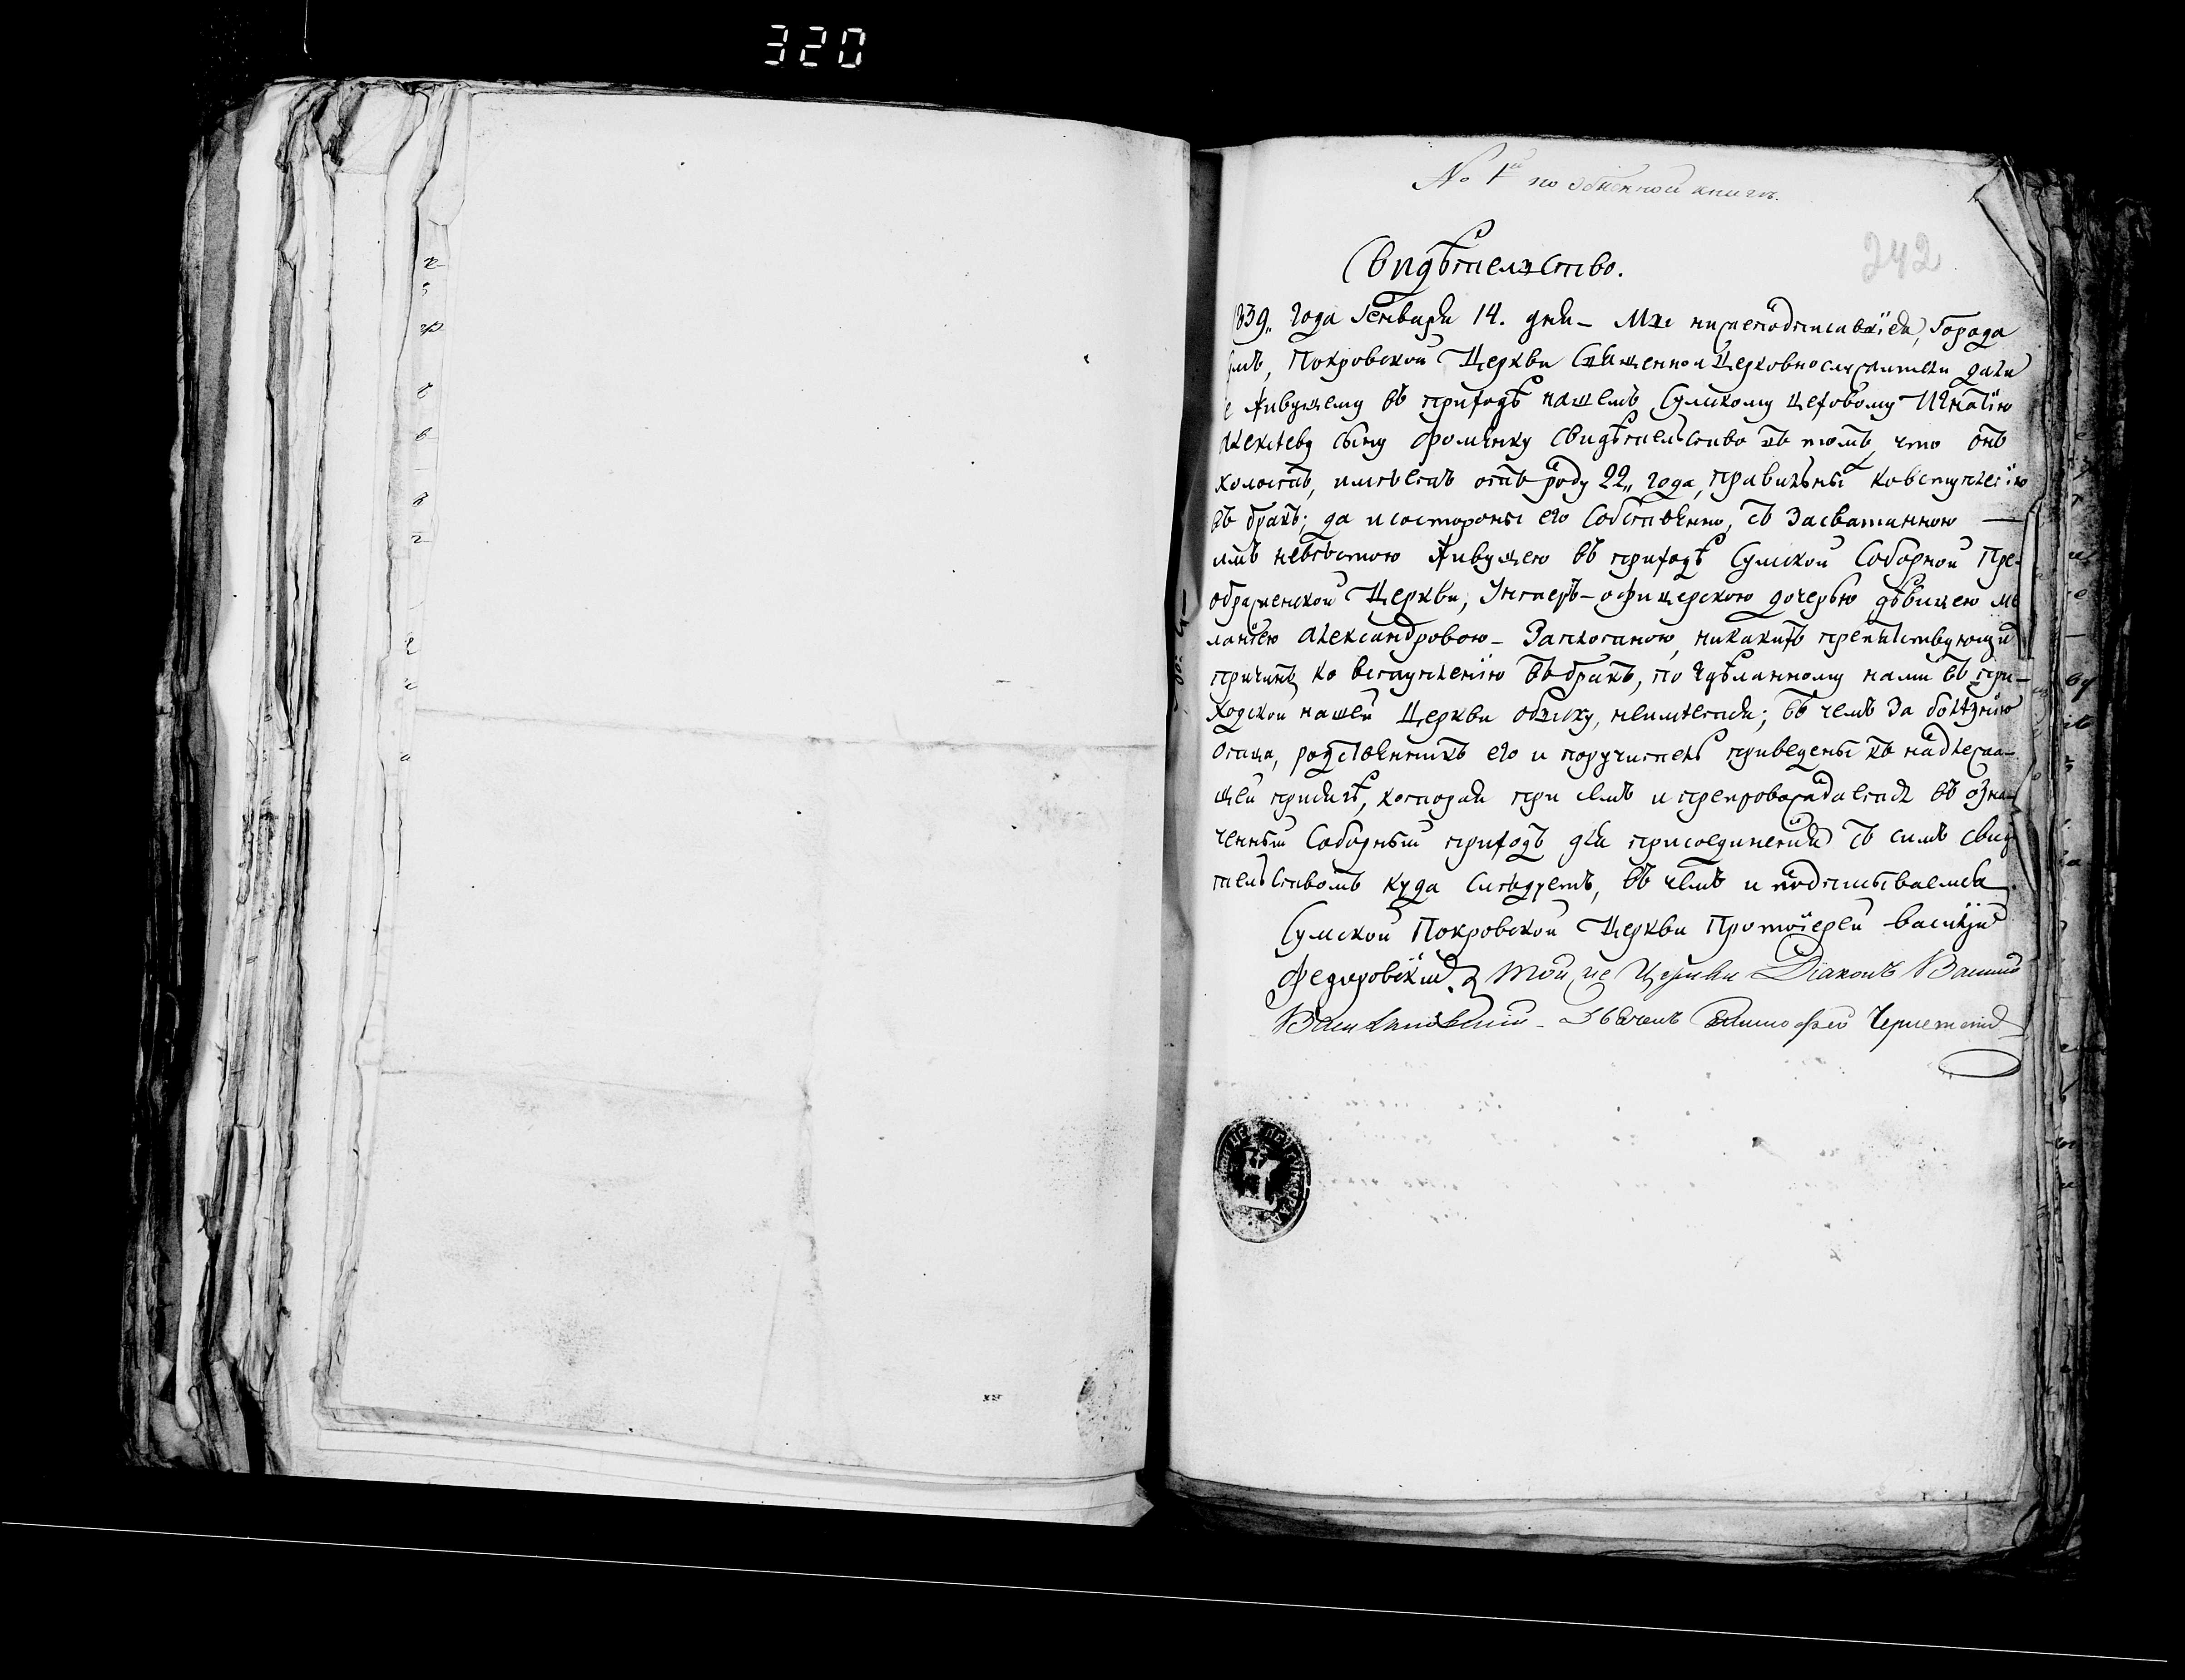 320
№ 1й по обыскной книгѣ.
242
Свидѣтельство.
1839,, года Генваря 14. дня – Мы нижеподписавшїеся, города
Сумъ, Покровской Церкви Священноцерковнослужители дали
сїе живущему въ приходѣ нашемъ Сумскому цеховому Игнатїю
Алексѣеву сыну Фоменку свидѣтельство въ томъ, что онъ
холостъ, имѣетъ отъ роду 22,, года, правильны ко вступленїю
въ бракъ; да и со стороны его собственно, съ засватанною —
имъ невѣстою живущею въ приходѣ Сумской Соборной Пре-
ображенской Церкви, Унтеръ-офицерскою дочерью дѣвицею Ме
ланїею Александровою – никакихъ препятствующих
причинъ ко вступленїю въ бракъ, по здѣланному нами въ при-
ходской нашей Церкви обыску, неимѣется; въ чемъ за болѣзнїю
отца, родственникъ его и поручители приведены къ надлежа-
щей присягѣ, которая при семъ и препровождается въ озна-
ченный Соборный приходъ для присоединенїя съ симъ свидѣ
тельствомъ куда слѣдуетъ, въ чемъ и подписываемся
Сумской Покровской Церкви Протоїерей Василїй
Федоровскїй. Той же Церкви Дїаконъ Василїй
Дьячекъ Тимофей